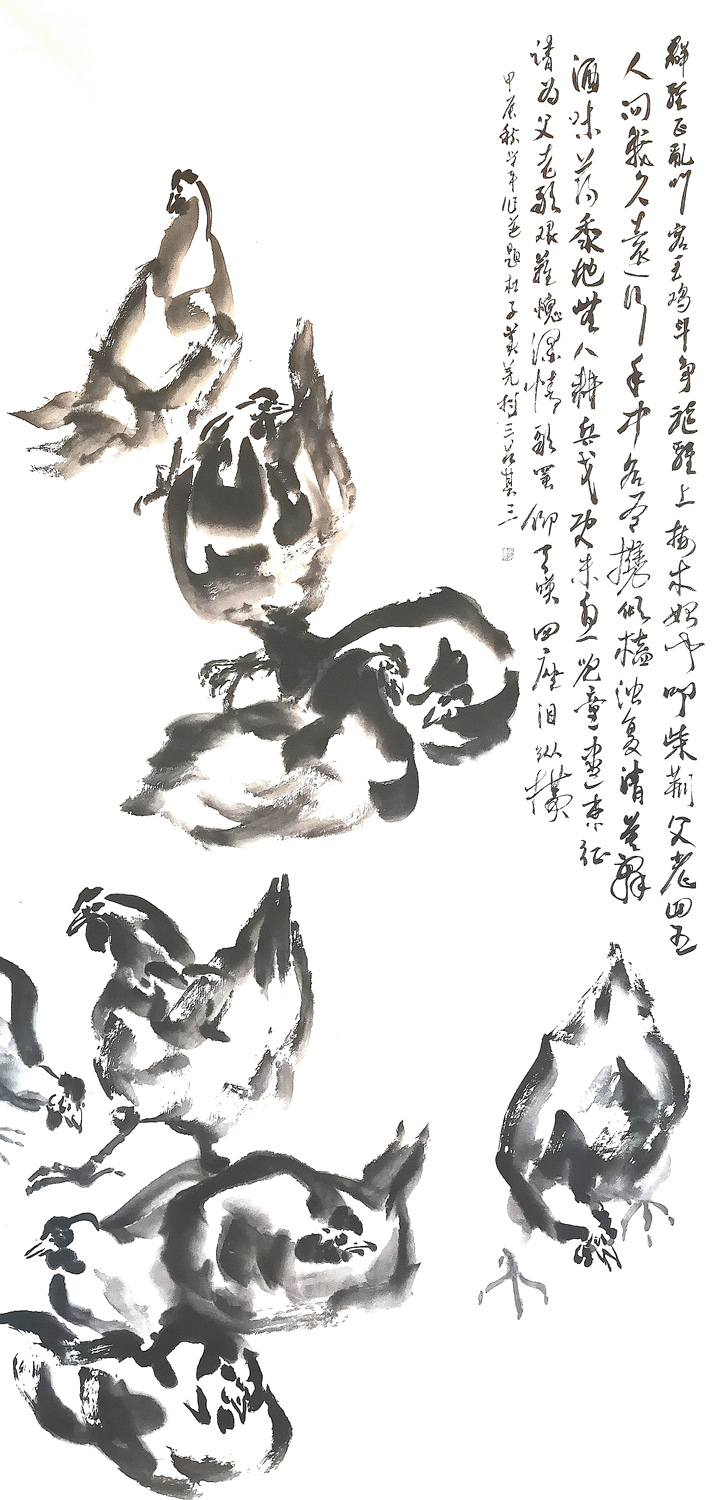 群雞正亂叫客至鸡斗争驱雞上樹木始闻叩柴荆父老四五
人问我久遠行手中各有攜倾榼浊复清莫辞
酒味薄黍地無人耕兵戈既未息兒童盡东征
请为父老歌艰難愧深情歌罢仰天嘆四座泪纵横
甲辰秋作並题杜子美羌村三首其三